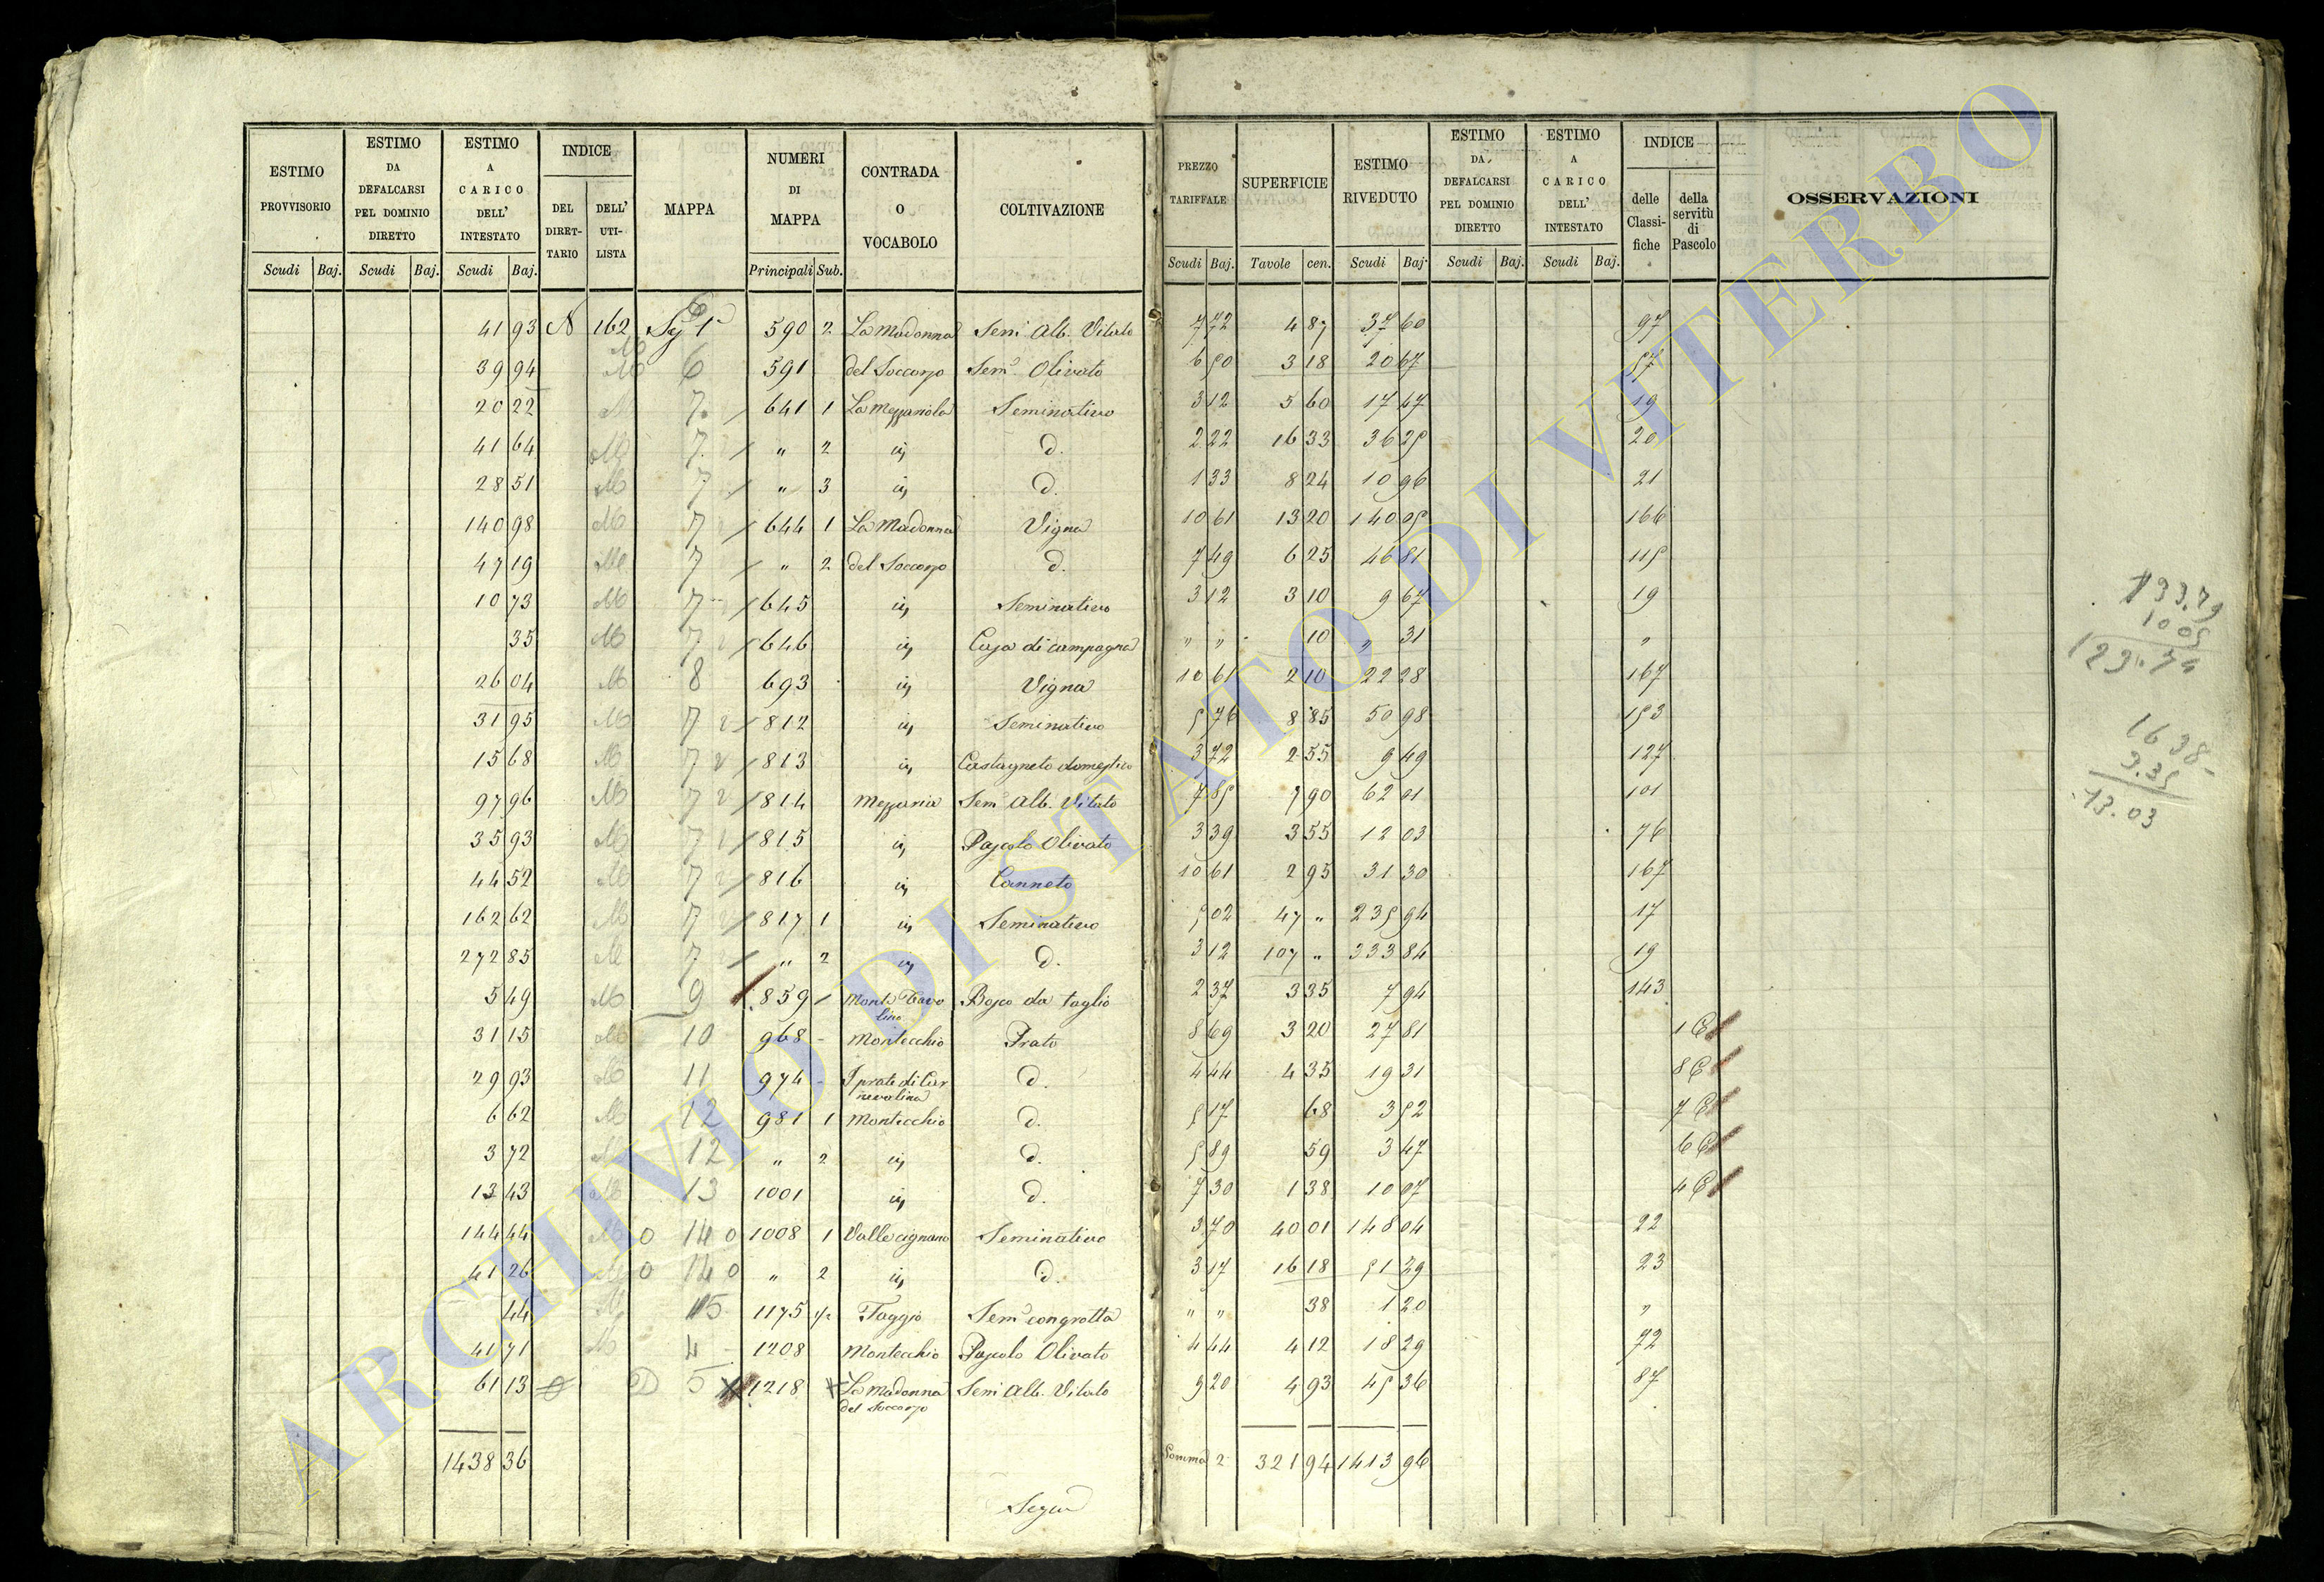 ESTIMO PROVVISORIO | ESTIMO DA DEFALCARSI PEL DOMINIO DIRETTO | ESTIMO A CARICO DELL' INTESTATO | INDICE | MAPPA | NUMERI DI MAPPA | CONTRADA O VOCABOLO | COLTIVAZIONE | PREZZO TARIFFALE | SUPERFICIE | ESTIMO RIVEDUTO | ESTIMO DA DEFALCARSI PEL DOMINIO DIRETTO | ESTIMO A CARICO DELL' INTESTATO | INDICE | OSSERVAZIONI
DEL DIRET-TARIO | DELL' UTI-LISTA | delle Classi-fiche | della servitù di Pascolo
Scudi | Baj. | Scudi | Baj. | Scudi | Baj. | Principali | Sub. | Scudi | Baj. | Tavole | cen. | Scudi | Baj. | Scudi | Baj. | Scudi | Baj.
41 93 N 162 590 2 La Madonna Sem. Alb. Vitato 7 72 4 87 37 60 97
39 94 M 6 591 del Soccorso Sem. Olivato 6 50 3 18 20 67 57
20 22 M 7 641 1 La Mezzariola Seminativo 3 12 5 60 17 47 19
41 64 M 7 " 2 iv d. 2 22 16 33 36 25 20
28 51 M 7 " 3 iv d. 1 33 8 24 10 96 21
140 98 M 7 644 1 La Madonna Vigna 10 61 13 20 140 05 166
47 19 M 7 " 2 del Soccorso d. 7 49 6 25 46 81 115
10 73 M 7 645 iv Seminativo 3 12 3 10 9 67 19
35 M 7 646 iv Casa di campagna " " 10 " 31 "
26 04 M 8 693 iv Vigna 10 61 2 10 22 28 167
31 95 M 7 812 iv Seminativo 5 76 8 85 50 98 153
15 68 M 7 813 iv Castagneto domestico 3 72 2 55 9 49 127
97 96 M 7 814 Mezzaria Sem. Alb. Vitato 7 85 7 90 62 01 101
35 93 M 7 815 iv Pascolo Olivato 3 39 3 55 12 03 76
44 52 M 7 816 iv Canneto 10 61 2 95 31 30 167
162 62 M 7 817 1 iv Seminativo 5 02 47 " 235 94 17
272 85 M 7 " 2 iv d. 3 12 107 " 333 84 19
5 49 M 9 859 Bosco da taglio 2 37 3 35 7 94 143
31 15 M 10 968 Montecchio Prato 8 69 3 20 27 81 1
29 93 M 11 974 I prati di Carnevolina d. 4 44 4 35 19 31 8
6 62 M 12 981 1 Montecchio d. 5 17 68 3 52 7
3 72 M 12 " 2 iv d. 5 89 59 3 47 6
13 43 M 13 1001 iv d. 7 30 1 38 10 07 4
144 44 M 0 14 0 1008 1 Valle cignano Seminativo 3 70 40 01 148 04 22
41 26 M 0 14 0 " 2 iv d. 3 17 16 18 51 29 23
44 M 15 1175 Faggio Sem. con grotta " " 38 1 20 "
41 71 M 4 1208 Montecchio Pascolo Olivato 4 44 4 12 18 29 72
61 13 D 5 1218 La Madonna del Soccorso Sem. Alb. Vitato 9 20 4 93 45 36 87
1438 36 Somma 2 321 94 1413 96
Segue
10 05
16 38
3.35
13.03
ARCHIVIO DI STATO DI VITERBO